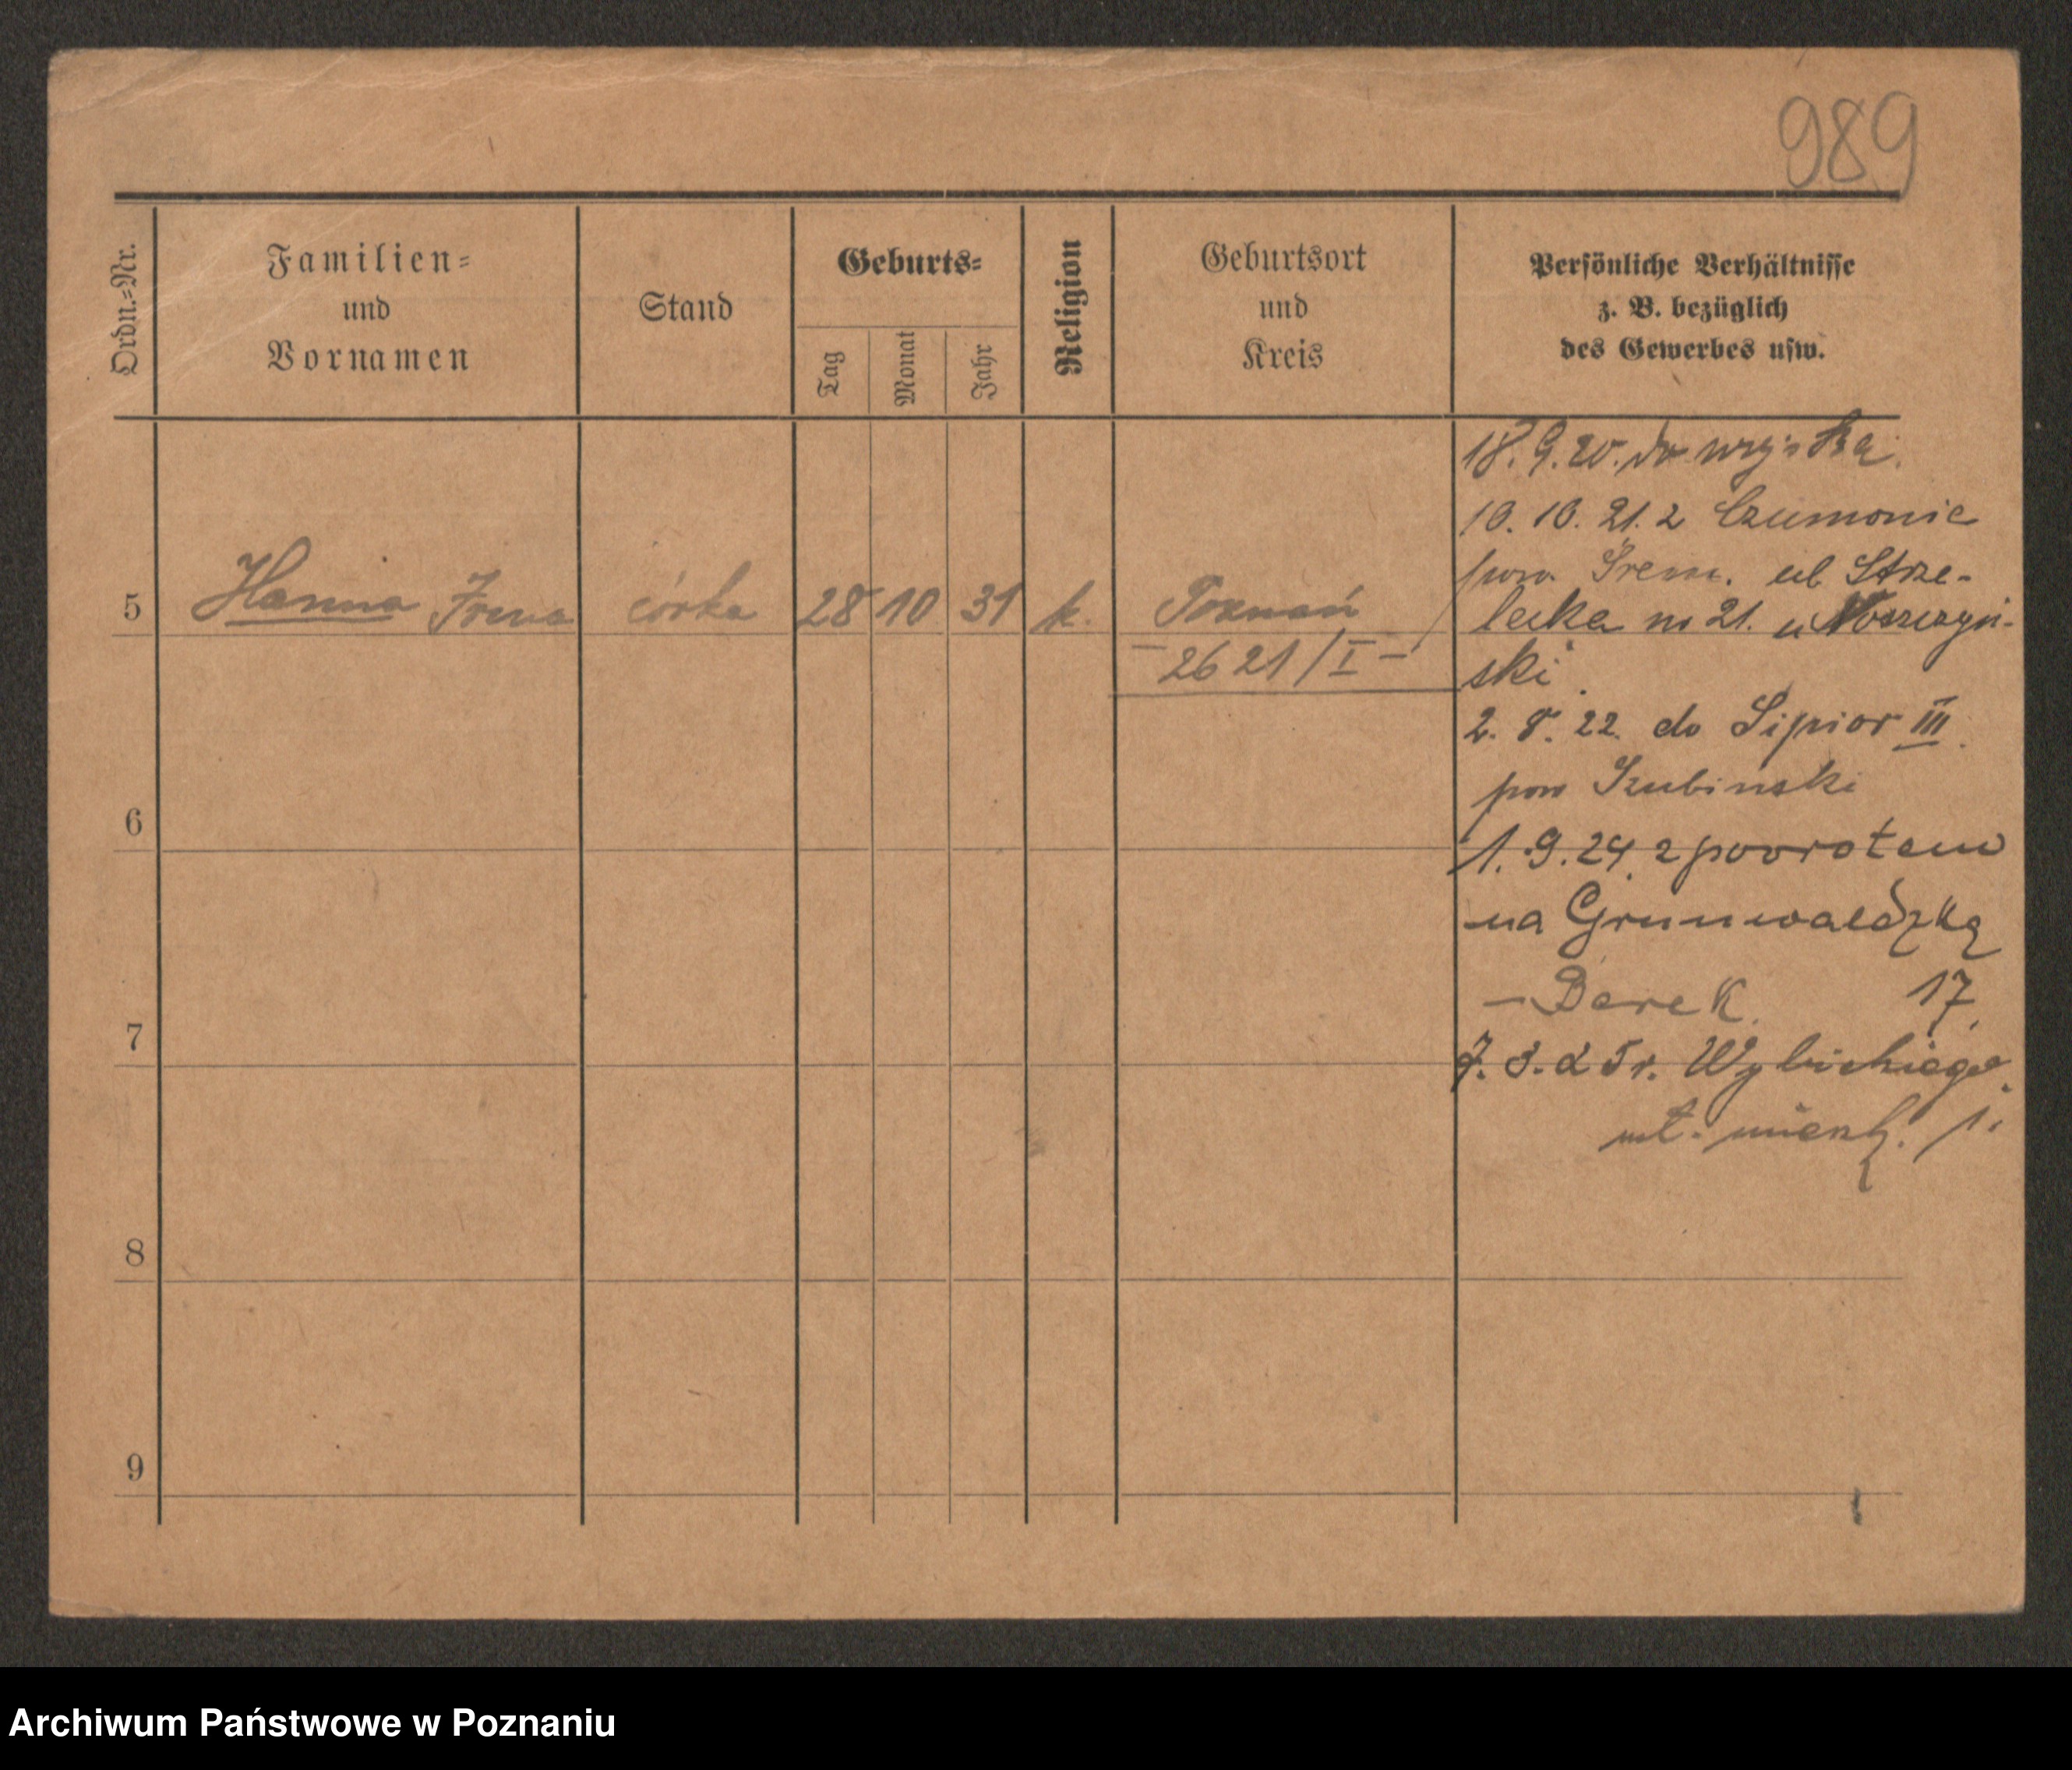 989
Ordn.=Nr.
Familien=
und
Vornamen
Stand
Geburts=
Tag
Monat
Jahr
Religion
Geburtsort
und
Kreis
Persönliche Verhältnisse
z. B. bezüglich
des Gewerbes usw.
18. 9. 20. do wojska.
10. 10. 21. z
pow. Śrem. ul Strze-
5 Hanna Irena córka 28 10 31 k. Poznań
lecka nr 21. u
2621/I
ski.
2. 8. 22. do Lipior III.
pow Szubinski
6
1. 9. 24. z powrotem
na Grunwaldzką
17.
7
7. 3. 25 r. Wybickiego.
1.
8
9
Archiwum Państwowe w Poznaniu